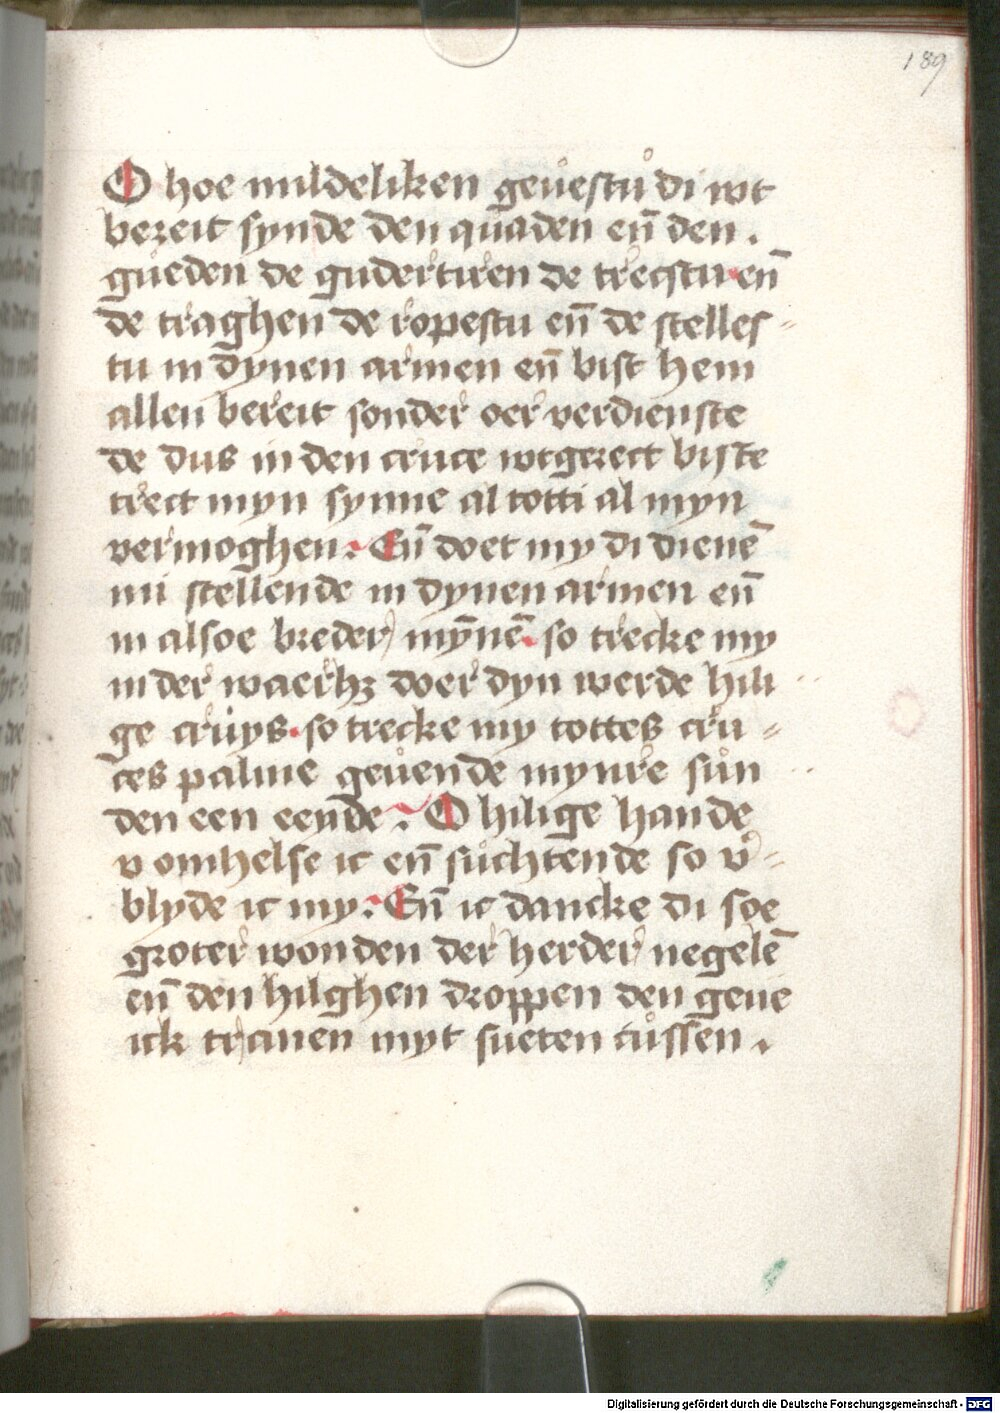 189
O hoe mildeliken geuestu di wt
bereit synde den quaden eñ den .
gueden de gudertiren de trecstu eñ
de traghen de ropestu eñ de stelles-
tu in dynen armen eñ bist hem
allen bereit sonder oer verdienste
de dus in den cruce wtgerect biste
trect myn synne al totti al myn
vermoghen. Eñ doet my di dienē
mi stellende in dynen armen eñ
in alsoe breder mȳnē. so trecke my
in der waerhꝫ doer dyn werde hili
ge crüys. so trecke my tottes cru-
ces palme geuende mynre sůn
den een eende. O hilige hande
v omhelse ic eñ sůchtende so v-
blyde ic my. Eñ ic dancke di soe
groter wonden der herder negelē
eñ den hilghen droppen den geue
ick tranen myt sueten cůssen .
Digitalisierung gefördert durch die Deutsche Forschungsgemeinschaft - DFG